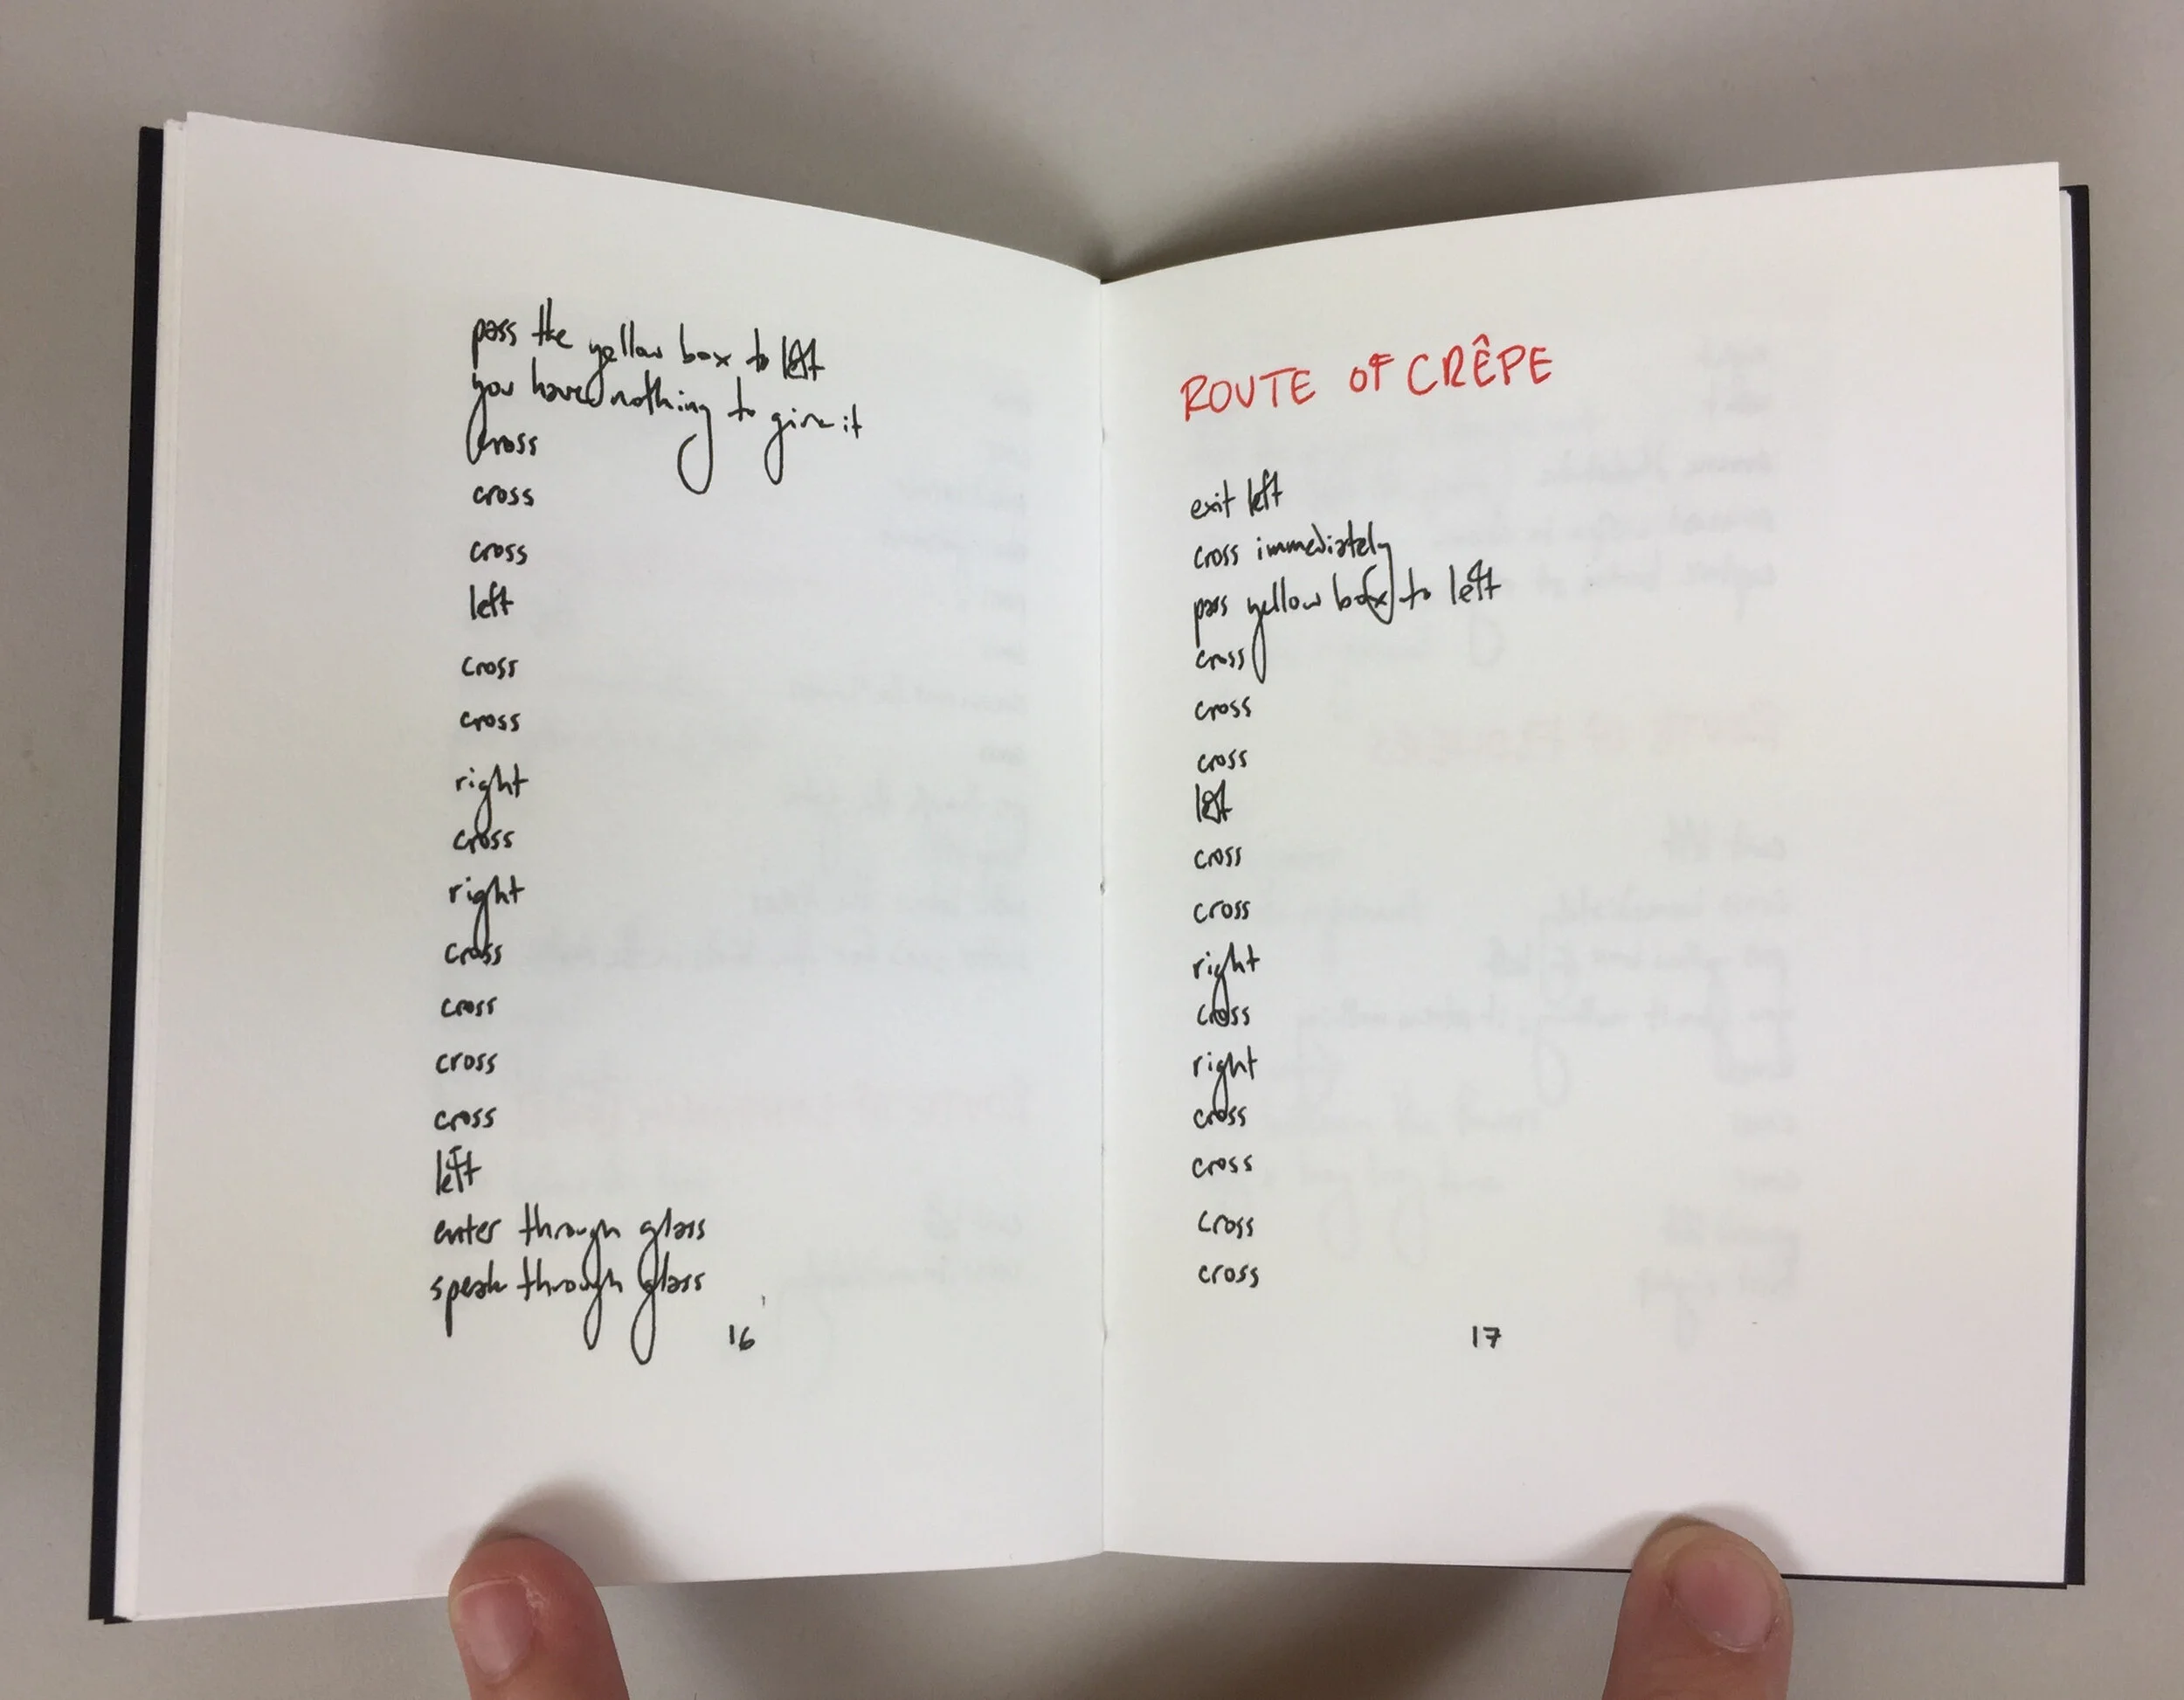 pass the yellow box to left
you have nothing to give it
cross
cross
cross
left
cross
cross
right
cross
right
cross
cross
cross
cross
left
enter through glass
speak through glass
16
ROUTE OF CRÊPE
exit left
cross immediately
pass yellow box to left
cross
cross
cross
left
cross
cross
right
cross
right
cross
cross
cross
cross
17